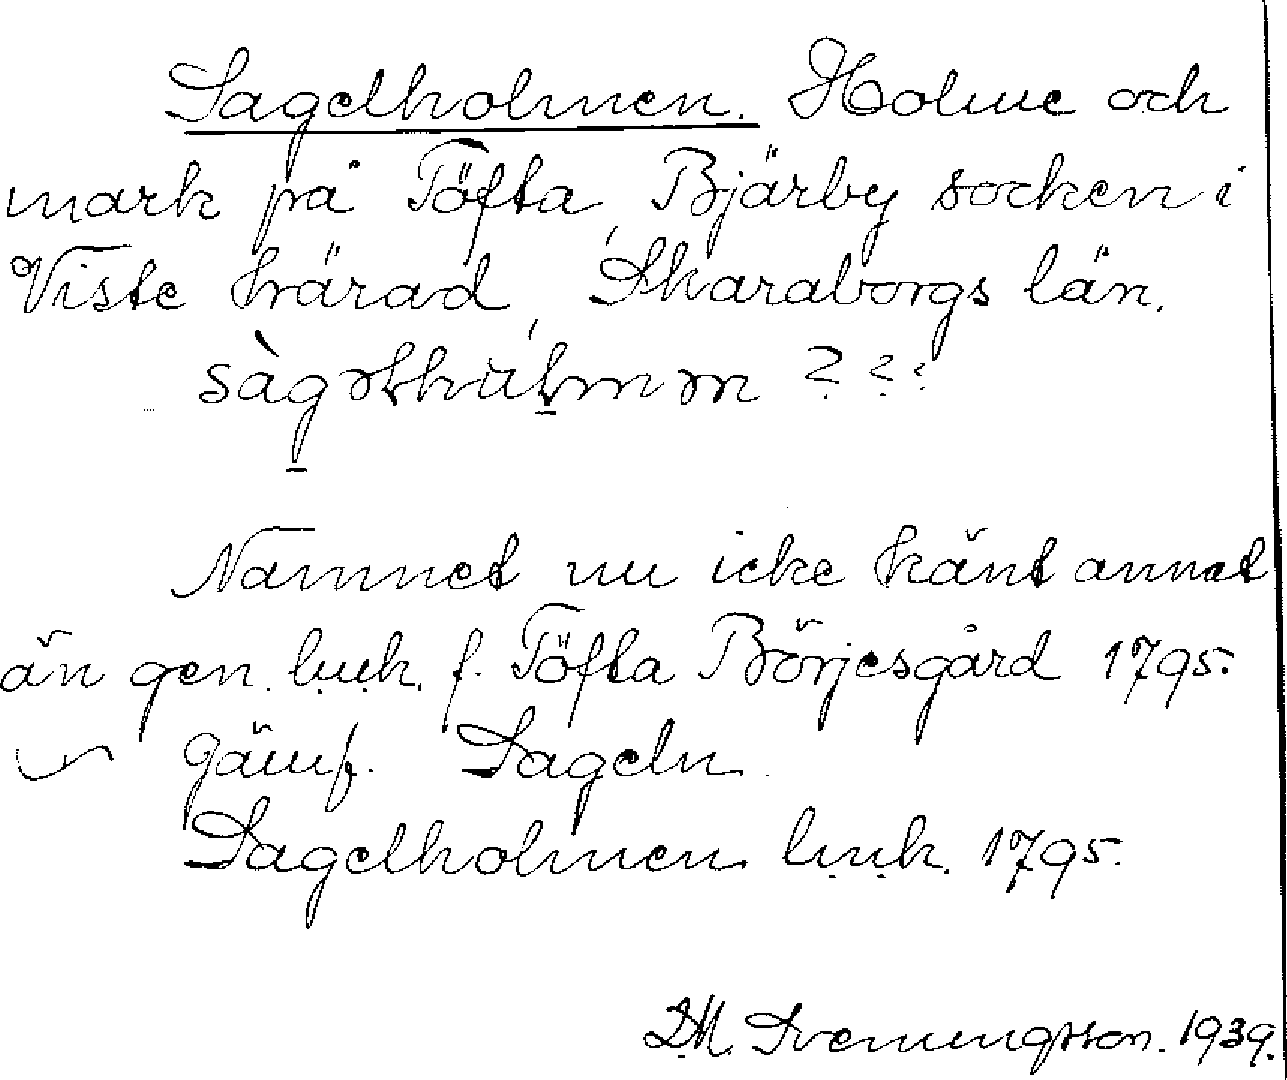 Sagelholmen. Holme och
mark på Töfta, Bjärby socken i
Viste härad, Skaraborgs län.
? ? ?
Namnet nu icke känt annat
än gen. l.u.k. f. Töfta Börjesgård 1795.
Jämf. Sageln.
Sagelholmen l.u.k. 1795.
D.M. Svenungsson. 1939.